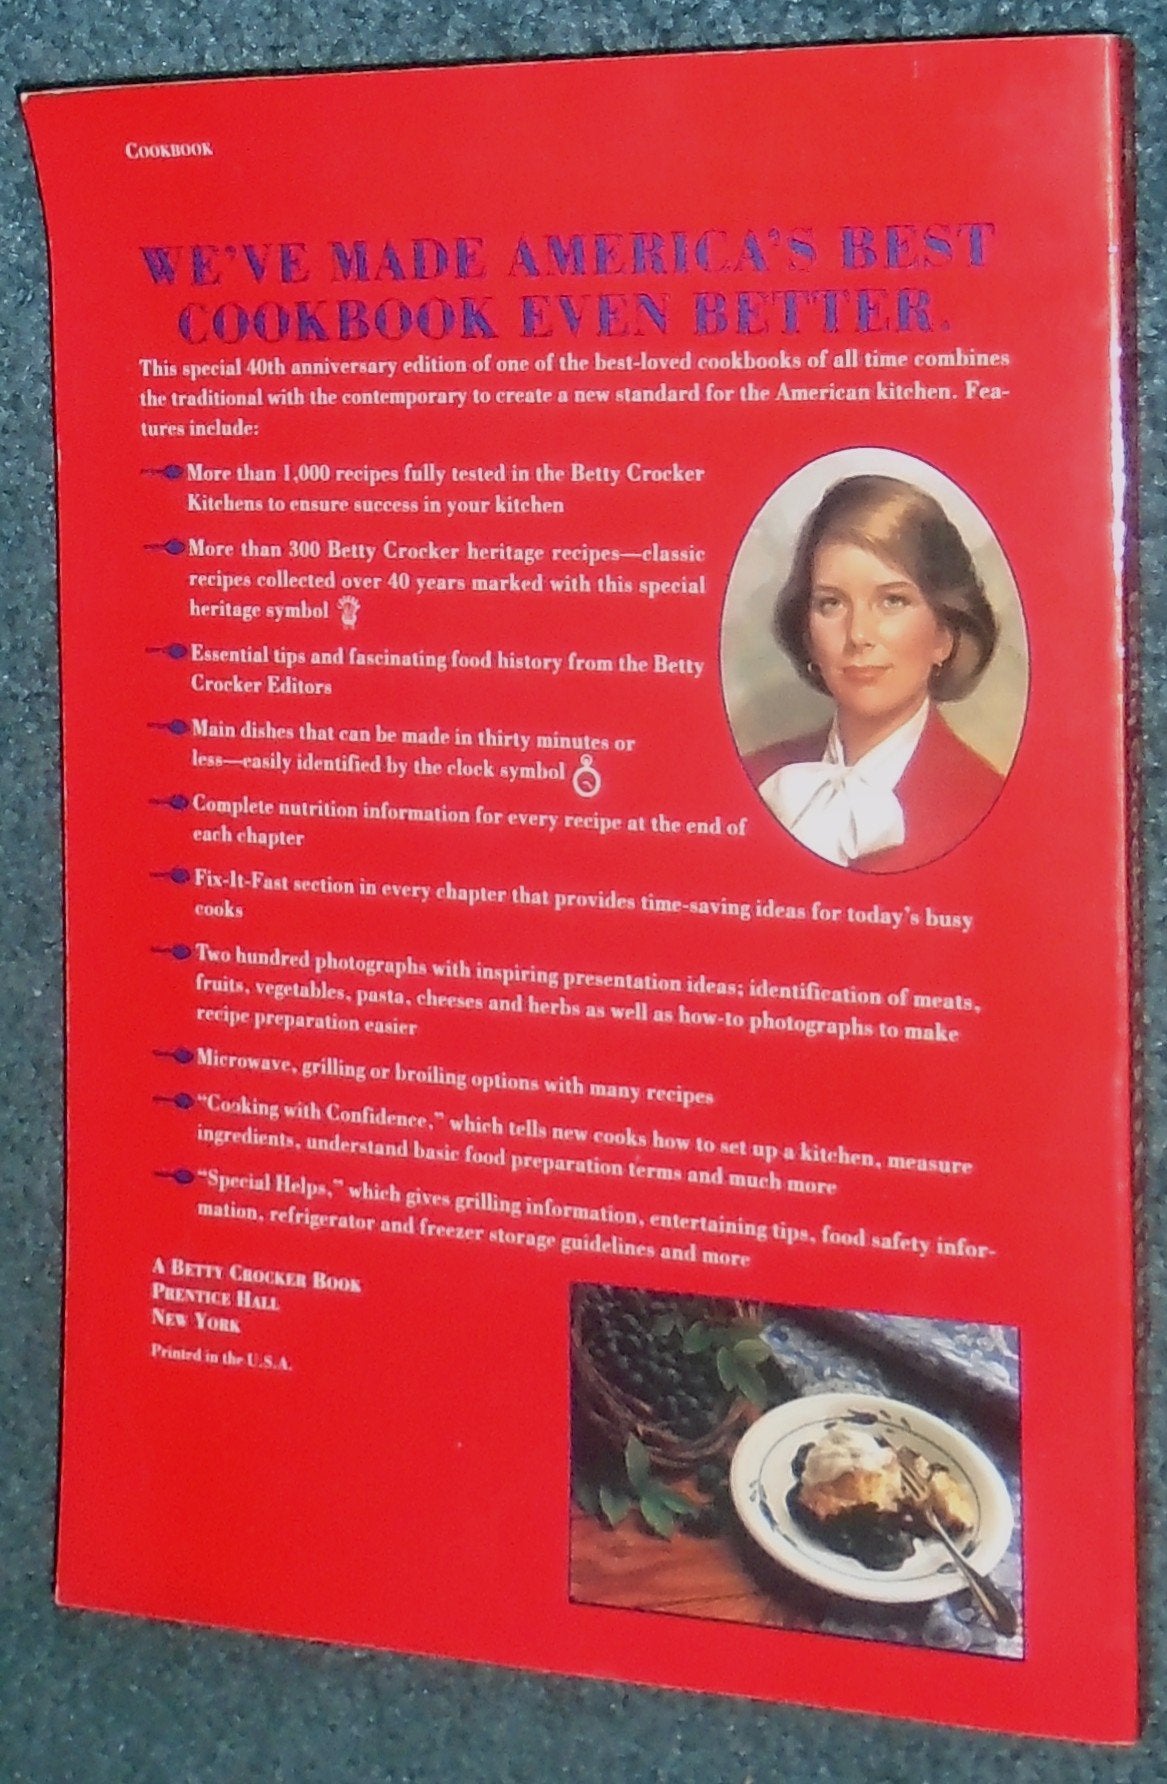 COOKBOOK
WE'VE MADE AMERICA'S BEST
COOKBOOK EVEN BETTER.
This special 40th anniversary edition of one of the best-loved cookbooks of all time combines
the traditional with the contemporary to create a new standard for the American kitchen. Fea-
tures include:
More than 1,000 recipes fully tested in the Betty Crocker
Kitchens to ensure success in your kitchen
More than 300 Betty Crocker heritage recipes—classic
recipes collected over 40 years marked with this special
heritage symbol
Essential tips and fascinating food history from the Betty
Crocker Editors
Main dishes that can be made in thirty minutes or
less—easily identified by the clock symbol
Complete nutrition information for every recipe at the end of
each chapter
Fix-It-Fast section in every chapter that provides time-saving ideas for today's busy
cooks
Two hundred photographs with inspiring presentation ideas; identification of meats,
fruits, vegetables, pasta, cheeses and herbs as well as how-to photographs to make
recipe preparation easier
Microwave, grilling or broiling options with many recipes
"Cooking with Confidence," which tells new cooks how to set up a kitchen, measure
ingredients, understand basic food preparation terms and much more
"Special Helps," which gives grilling information, entertaining tips, food safety infor-
mation, refrigerator and freezer storage guidelines and more
A BETTY CROCKER BOOK
PRENTICE HALL
NEW YORK
Printed in the U.S.A.